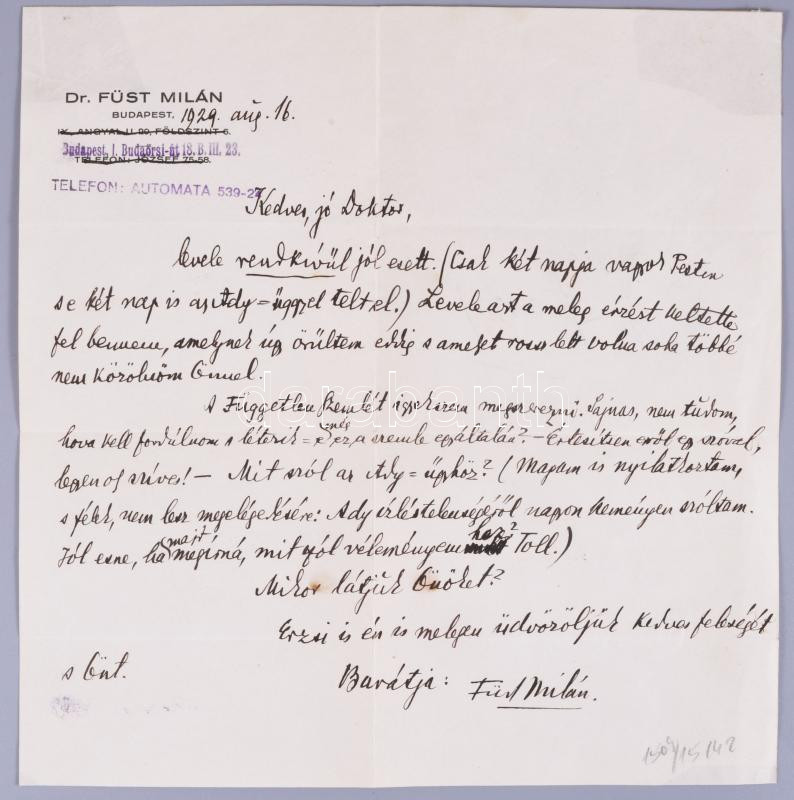 Dr. FÜST MILÁN
BUDAPEST, 1929. aug. 16.
IX, ANGYAL U. 20, FÖLDSZINT 6.
Budapest, I. Budaörsi-út 18. B. III. 23.
TELEFON: JÓZSEF 75-58.
TELEFON: AUTOMATA 539-24
Kedves, jó Doktor,
levele rendkívül jól esett. (Csak két napja vagyok Pesten
s e két nap is az Ady=üggyel telt el.) Levele azt a meleg érzést keltette
fel bennem, amelynek úgy örültem eddig s amelyet rossz lett volna soha többé
nem közölnöm Önnel.
A Független Szemlét igyekszem megszerezni. Sajnos, nem tudom,
hova kell fordulnom s létezik=é még ez a szemle egyáltalán? – Értesítsen erről egy szóval,
legyen oly szíves! – Mit szól az Ady=ügyhöz? (Magam is nyilatkoztam,
s félek, nem lesz megelégedésére: Ady ízléstelenségéről nagyon keményen szóltam.
Jól esne, ha majd megírná, mit szól véleményemhez? Toll.)
Mikor látjuk Önöket?
Erzsi is én is melegen üdvözöljük kedves feleségét
s Önt.
Barátja: Füst Milán.
darabanth